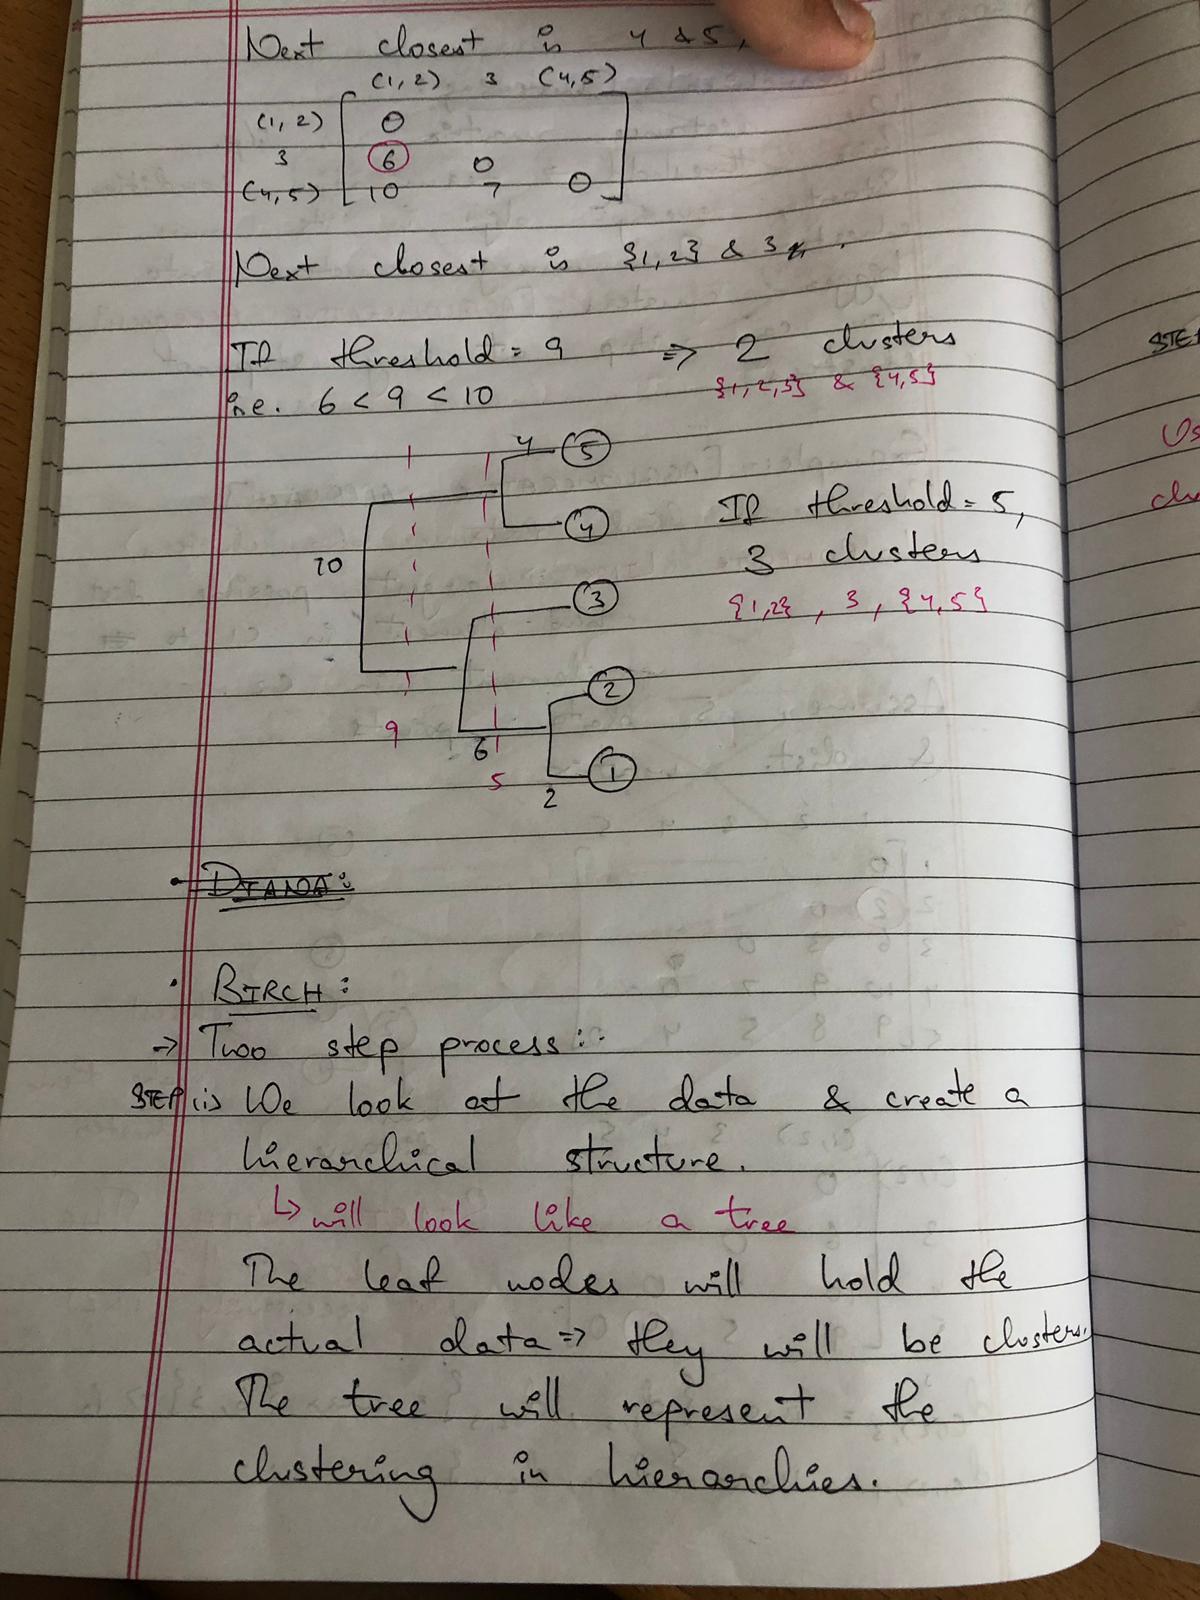 Next closest is 4 & 5,
(1, 2) 3 (4,5)
(1, 2) 0
3 6 0
(4,5) 10 7 0
Next closest is {1,2} & 3
If threshold = 9 => 2 clusters
i.e. 6 < 9 < 10 {1,2,3} & {4,5}
4 5
4
If threshold = 5,
10
3 clusters
3
{1,2} , 3, {4,5}
2
9
6
1
5
2
DIANA:
• BIRCH:
→ Two step process:
STEP (i) We look at the data & create a
hierarchical structure.
↳ will look like a tree
The leaf nodes will hold the
actual data => they will be clusters.
The tree will represent the
clustering in hierarchies.
STEP